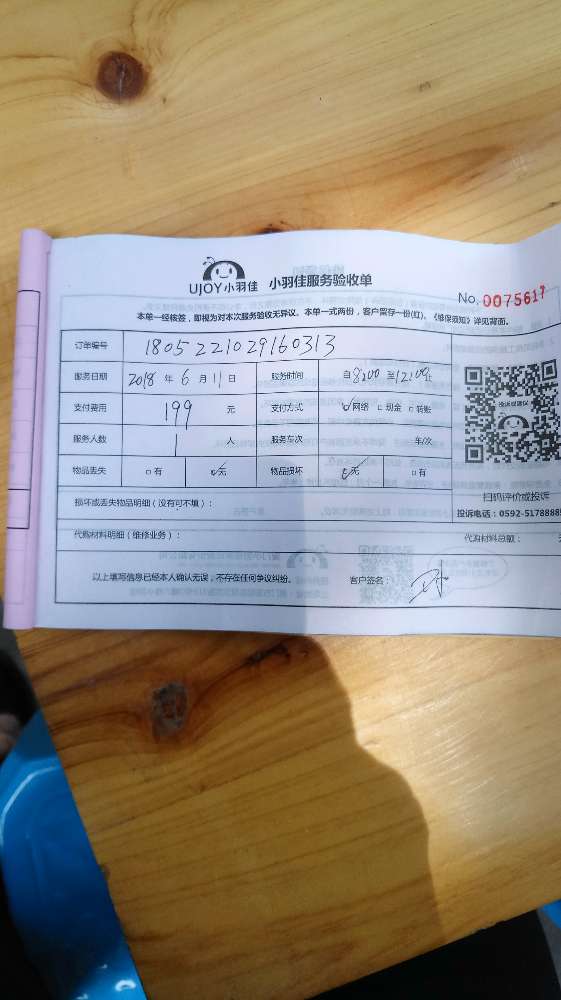 UJOY小羽佳 小羽佳服务验收单
No. 0075617
本单一经核签，即视为对本次服务验收无异议。本单一式两份，客户留存一份(红)。《维保须知》详见背面。
订单编号 1805221029160313
服务日期 2018 年 6 月 11 日 服务时间 自 8:00 至 12:00 止
支付费用 199 元 支付方式 ☑网络 □现金 □转账
服务人数 1 人 服务车次 车/次
物品丢失 □有 ☑无 物品损坏 ☑无 □有
损坏或丢失物品明细（没有可不填）：
扫码评价或投诉
投诉电话：0592-5178888
代购材料明细（维修业务）： 代购材料总额：
以上填写信息已经本人确认无误，不存在任何争议纠纷。 客户签名：